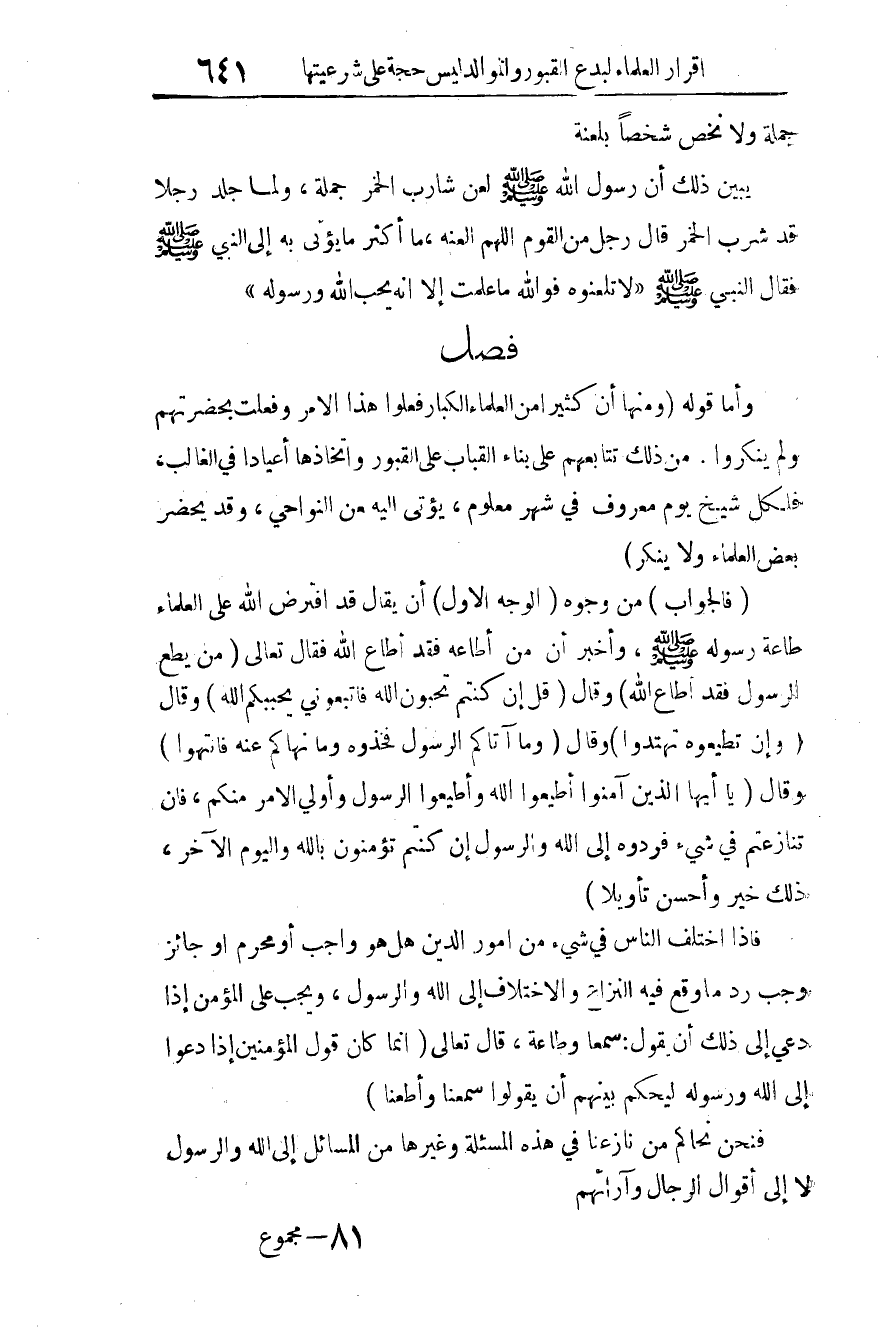 اقرار العلماء لبدع القبور والموالد ليس حجة على شرعيتها ٦٤١
جملة ولا نخص شخصاً بلعنة
يبين ذلك أن رسول الله ﷺ لعن شارب الخمر جملة ، ولما جلد رجلا
قد شرب الخمر قال رجل من القوم اللهم العنه ، ما أكثر ما يؤتى به إلى النبي ﷺ
فقال النبي ﷺ «لا تلعنوه فوالله ما علمت إلا انه يحب الله ورسوله »
فصل
وأما قوله (ومنها أن كثيرا من العلماء الكبار فعلوا هذا الامر وفعلت بحضرتهم
ولم ينكروا . من ذلك تتابعهم على بناء القباب على القبور واتخاذها أعيادا في الغالب،
فلكل شيخ يوم معروف في شهر معلوم ، يؤتى اليه من النواحي ، وقد يحضر
بعض العلماء ولا ينكر)
( فالجواب ) من وجوه ( الوجه الاول) أن يقال قد افترض الله على العلماء
طاعة رسوله ﷺ ، وأخبر أن من أطاعه فقد أطاع الله فقال تعالى ( من يطع
الرسول فقد أطاع الله) وقال ( قل إن كنتم تحبون الله فاتبعوني يحببكم الله ) وقال
( وإن تطيعوه تهتدوا )وقال ( وما آتاكم الرسول فخذوه وما نهاكم عنه فانتهوا )
وقال ( يا أيها الذين آمنوا أطيعوا الله وأطيعوا الرسول وأولي الامر منكم ، فان
تنازعتم في شيء فردوه إلى الله والرسول إن كنتم تؤمنون بالله واليوم الآخر ،
ذلك خير وأحسن تأويلا )
فاذا اختلف الناس في شيء من امور الدين هل هو واجب أو محرم او جائز
وجب رد ما وقع فيه النزاع والاختلاف إلى الله والرسول ، ويجب على المؤمن إذا
دعي إلى ذلك أن يقول: سمعا وطاعة ، قال تعالى ( انما كان قول المؤمنين إذا دعوا
إلى الله ورسوله ليحكم بينهم أن يقولوا سمعنا وأطعنا )
فنحن نحاكم من نازعنا في هذه المسئلة وغيرها من المسائل إلى الله والرسول
لا إلى أقوال الرجال وآرائهم
٨١ – مجموع